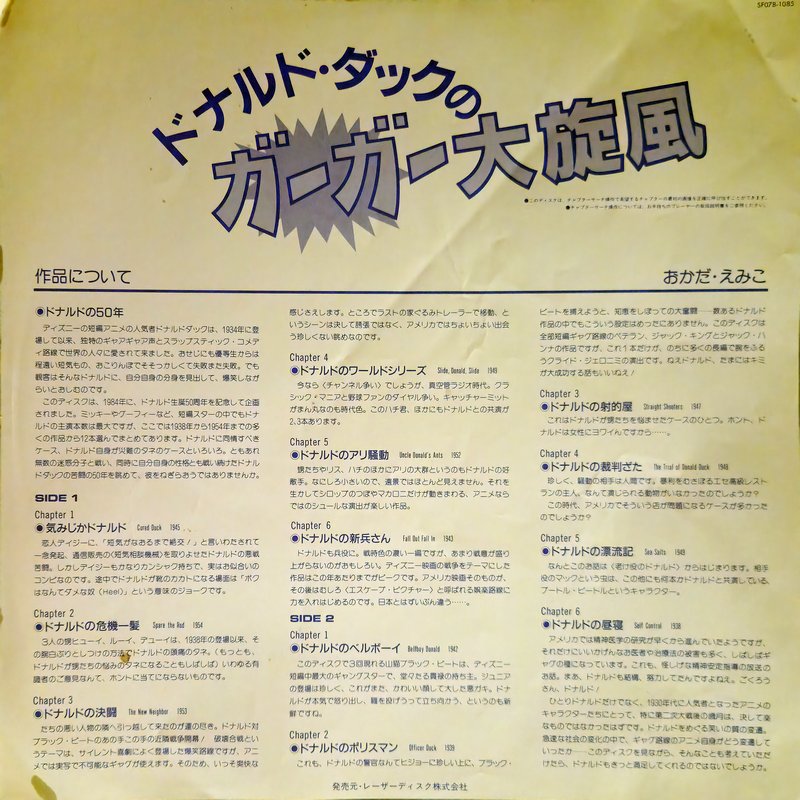 SF078-1085
ドナルド・ダックの
ガーガー大旋風
●このディスクは、チャプターサーチ操作で希望するチャプターの最初の画像を正確に呼び出すことができます。
●チャプターサーチ操作については、お手持ちのプレーヤーの取扱説明書をご参照ください。
作品について
おかだ・えみこ
●ドナルドの50年
ディズニーの短編アニメの人気者ドナルドダックは、1934年に登
場して以来、独特のギャアギャア声とスラップスティック・コメデ
ィ路線で世界の人々に愛されて来ました。おせじにも優等生からは
程遠い短気もの、おこりんぼでそそっかしくて失敗また失敗。でも
観客はそんなドナルドに、自分自身の分身を見出して、爆笑しなが
らいとおしむのです。
このディスクは、1984年に、ドナルド生誕50周年を記念して企画
されました。ミッキーやグーフィーなど、短編スターの中でもドナ
ルドの主演本数は最大ですが、ここでは1938年から1954年までの多
くの作品から12本選んでまとめてあります。ドナルドに同情すべき
ケース、ドナルド自身が災難のタネのケースといろいろ。ともあれ
無数の迷惑分子と戦い、同時に自分自身の性格とも戦い続けたドナル
ドダックの苦闘の50年を眺めて、彼をねぎらおうではありませんか。
SIDE 1
Chapter 1
●気みじかドナルド Cured Duck 1945
恋人デイジーに、「短気がなおるまで絶交！」と言いわたされて
一念発起、通信販売の〈短気相談機械〉を取りよせたドナルドの悪戦
苦闘。しかしデイジーもかなりカンシャク持ちで、実はお似合いの
コンビなのです。途中でドナルドが靴のカカトになる場面は「ボク
はなんてダメな奴（Heel）」という意味のジョークです。
Chapter 2
●ドナルドの危機一髪 Spare the Rod 1954
3人の甥ヒューイ、ルーイ、デューイは、1938年の登場以来、そ
の腕白ぶりとしつけの方法でドナルドの頭痛のタネ。（もっとも、
ドナルドが甥たちの悩みのタネになることもしばしば）いわゆる有
識者のご意見なんて、ホントに当てにならないものです。
Chapter 3
●ドナルドの決闘 The New Neighbor 1953
たちの悪い人物の隣へ引っ越して来たのが運の尽き。ドナルド対
ブラック・ピートのあの手この手の近隣戦争開幕！ 破壊合戦とい
うテーマは、サイレント喜劇によく登場した爆笑路線ですが、アニ
メでは実写で不可能なギャグが使えます。そのため、いっそ爽快な
感じさえします。ところでラストの家ぐるみトレーラーで移動、と
いうシーンは決して誇張ではなく、アメリカではちょいちょい出会
う珍しくない眺めなのです。
Chapter 4
●ドナルドのワールドシリーズ Slide, Donald, Slide 1949
今なら〈チャンネル争い〉でしょうが、真空管ラジオ時代。クラ
シック・マニアと野球ファンのダイヤル争い。キャッチャーミット
がまん丸なのも時代色。このハチ君、ほかにもドナルドとの共演が
2、3本あります。
Chapter 5
●ドナルドのアリ騒動 Uncle Donald's Ants 1952
甥たちやリス、ハチのほかにアリの大群というのもドナルドの好
敵手。なにしろ小さいので、遠景ではほとんど見えません。それを
生かしてシロップのつぼやマカロニだけが動きまわる、アニメなら
ではのシュールな演出が楽しい作品。
Chapter 6
●ドナルドの新兵さん Fall Out Fall In 1943
ドナルドも兵役に。戦時色の濃い一編ですが、あまり戦意が盛り
上がらないのがおもしろい。ディズニー映画の戦争をテーマにした
作品はこの年あたりまでがピークです。アメリカ映画そのものが、
その後はむしろ〈エスケープ・ピクチャー〉と呼ばれる娯楽路線に
力を入れはじめるのです。日本とはずいぶん違う……。
SIDE 2
Chapter 1
●ドナルドのベルボーイ Bellboy Donald 1942
このディスクで3回現れる山猫ブラック・ピートは、ディズニー
短編中最大のギャングスターで、堂々たる貫禄の持ち主。ジュニア
の登場は珍しく、これがまた、かわいい顔して大した悪ガキ。ドナ
ルドが本気で怒り出し、職を投げうって立ち向かう、というのも新
鮮ですね。
Chapter 2
●ドナルドのポリスマン Officer Duck 1939
これも、ドナルドの警官なんてヒジョーに珍しい上に、ブラック・
ピートを捕えようと、知恵をしぼっての大奮闘……数あるドナルド
作品の中でもこういう設定はめったにありません。このディスクは
全部短編ギャグ路線のベテラン、ジャック・キングとジャック・ハ
ンナの作品ですが、これ1本だけが、のちに多くの長編で腕をふる
うクライド・ジェロニミの演出です。ねえドナルド、たまにはキミ
が大成功する話もいいねえ！
Chapter 3
●ドナルドの射的屋 Straight Shooters 1947
これはドナルドが甥たちを悩ませたケースのひとつ。ホント、ド
ナルドは女性にヨワイんですから……。
Chapter 4
●ドナルドの裁判ざた The Trial of Donald Duck 1948
珍しく、騒動の相手は人間です。暴利をむさぼるエセ高級レスト
ランの主人、なんて演じられる動物がいなかったのでしょうか？
この時代、アメリカでそういう店が問題になるケースが多かった
のでしょうか？
Chapter 5
●ドナルドの漂流記 Sea Salts 1949
なんとこのお話は〈老け役のドナルド〉からはじまります。相手
役のマックという虫は、この他にも何本かドナルドと共演している、
ブートル・ビートルというキャラクター。
Chapter 6
●ドナルドの昼寝 Self Control 1938
アメリカでは精神医学の研究が早くから進んでいたようですが、
それだけにいいかげんなお医者や治療法の被害も多く、しばしばギ
ャグの種になっています。これも、怪しげな精神安定指導の放送の
お話。まあ、ドナルドも結構、努力してたんですよねえ。ごくろう
さん、ドナルド！
ひとりドナルドだけでなく、1930年代に人気者となったアニメの
キャラクターたちにとって、特に第二次大戦後の歳月は、決して楽
なものではなかったはずです。ドナルドをめぐる笑いの質の変遷。
急速な社会の変化の中で、ギャグ路線のアニメ自身がどう変遷して
いったか――このディスクを見ながら、そんなことも考えていただ
けたら、ドナルドもきっと満足してくれるのではないでしょうか。
発売元・レーザーディスク株式会社